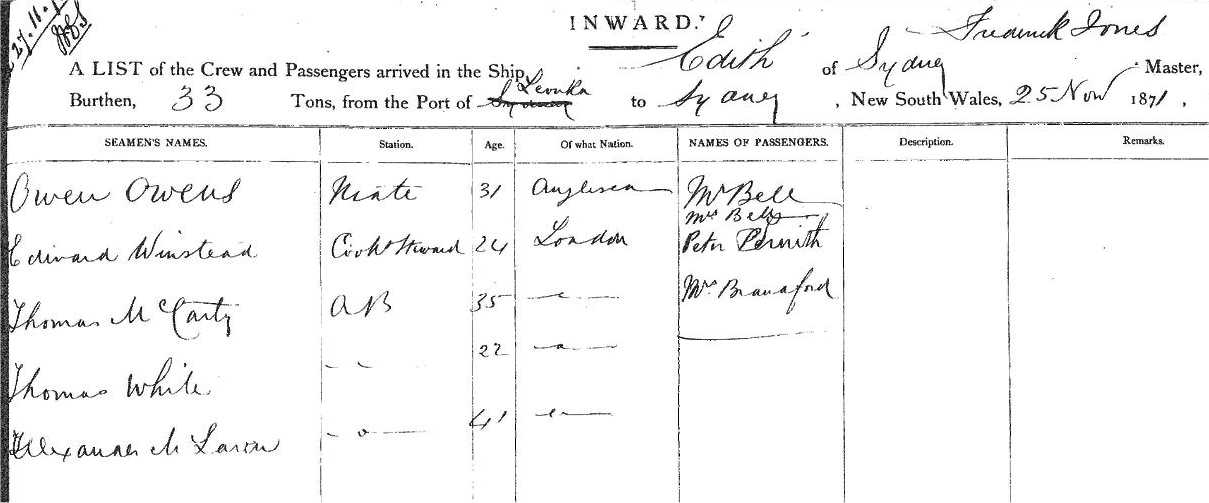 27.11.
INWARD.
A LIST of the Crew and Passengers arrived in the Ship Edith of Sydney Frederick Jones Master,
Burthen, 33 Tons, from the Port of Levuka to Sydney, New South Wales, 25 Nov 1871,
SEAMEN'S NAMES. Station. Age. Of what Nation. NAMES OF PASSENGERS. Description. Remarks.
Owen Owens Mate 31 Anglesea Mr Bell
Mrs Bell
Edward Winstead Cook & Steward 24 London Peter
Thomas McCarty AB 35 Mrs
Thomas White 22
Alexander M Laren 41